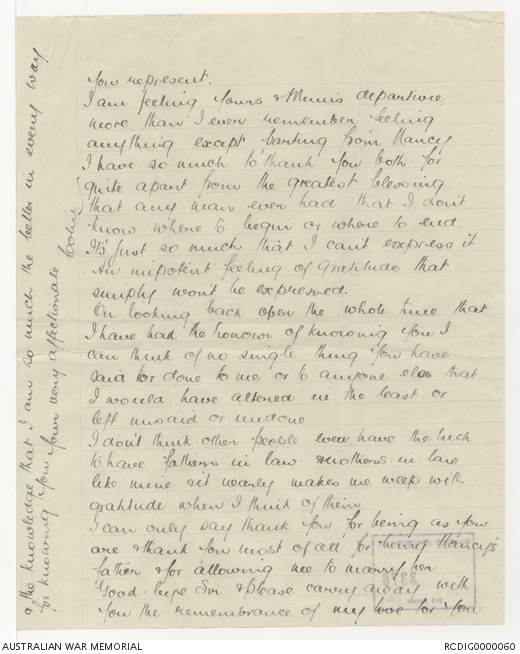 you represent.
I am feeling yours & Mums departure
more than I ever remember feeling
anything except parting from Nancy
I have so much to thank you both for
quite apart from the greatest blessing
that any man ever had that I don't
know where to begin or where to end.
It's just so much that I can't express it
An impotent feeling of gratitude that
simply won't be expressed.
On looking back over the whole time that
I have had the honour of knowing you I
can think of no single thing you have
said or done to me or to anyone else that
I would have altered in the least or
left unsaid or undone
I don't think other people ever have the luck
to have fathers in law & mothers in law
like mine & it nearly makes me weep with
gratitude when I think of them
I can only say thank you for being as you
are & thank you most of all for being Nancy's
father & for allowing me to marry her
Good-bye Sir & please carry away with
you the remembrance of my love for you
& the knowledge that I am so much the better in every way
for knowing you your very affectionate
AUSTRALIAN WAR MEMORIAL
RCDIG0000060